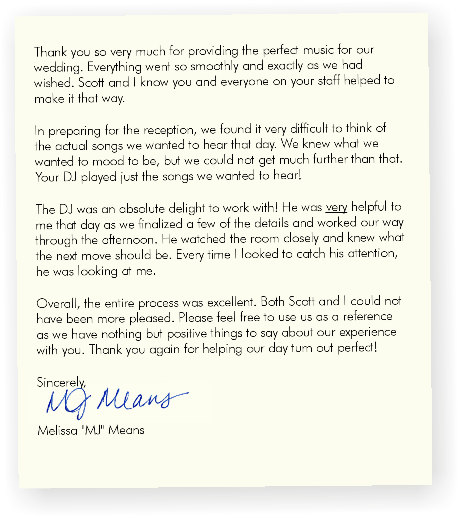 Thank you so very much for providing the perfect music for our
wedding. Everything went so smoothly and exactly as we had
wished. Scott and I know you and everyone on your staff helped to
make it that way.
In preparing for the reception, we found it very difficult to think of
the actual songs we wanted to hear that day. We knew what we
wanted to mood to be, but we could not get much further than that.
Your DJ played just the songs we wanted to hear!
The DJ was an absolute delight to work with! He was very helpful to
me that day as we finalized a few of the details and worked our way
through the afternoon. He watched the room closely and knew what
the next move should be. Every time I looked to catch his attention,
he was looking at me.
Overall, the entire process was excellent. Both Scott and I could not
have been more pleased. Please feel free to use us as a reference
as we have nothing but positive things to say about our experience
with you. Thank you again for helping our day turn out perfect!
Sincerely,
MJ Means
Melissa "MJ" Means